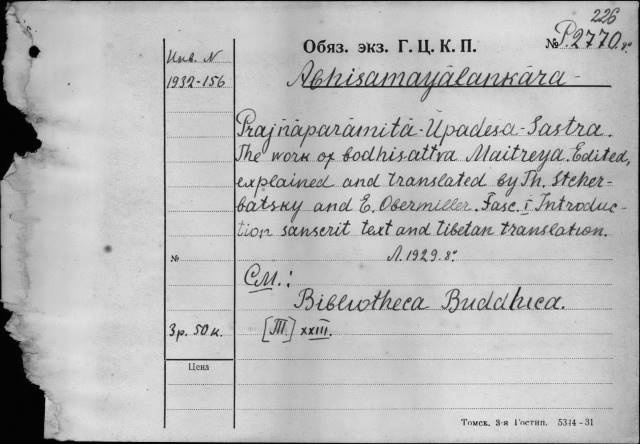 226
Обяз. экз. Г. Ц. К. П.
№ P.2770.8º
Инв. N
1932-156
Abhisamayālankāra-
Prajñāparamitā-Upadeśa-Śastra.
The work of bodhisattva Maitreya. Edited,
explained and translated by Th. Stcher-
batsky and E. Obermiller. Fasc. I Introduc-
tion sanscrit text and tibetan translation.
Л. 1929. 8º
№
См.:
Bibliotheca Buddhica.
3р. 50к.
[Т.] XXIII.
Цена
Томск, 3-я Гостип. 5344-31